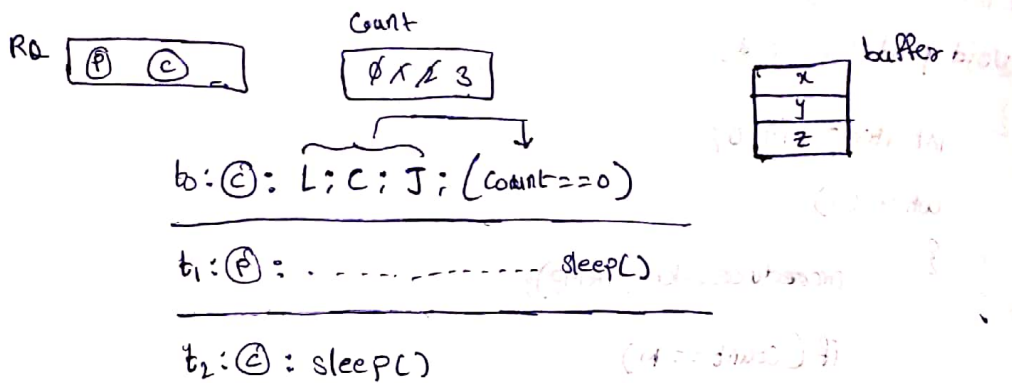 Count
RQ P C
0 1 2 3
buffer.
x
y
z
t0: C: L; C; J; (Count==0)
t1: P: . - - - - - - - - - - sleep()
t2: C: sleep()